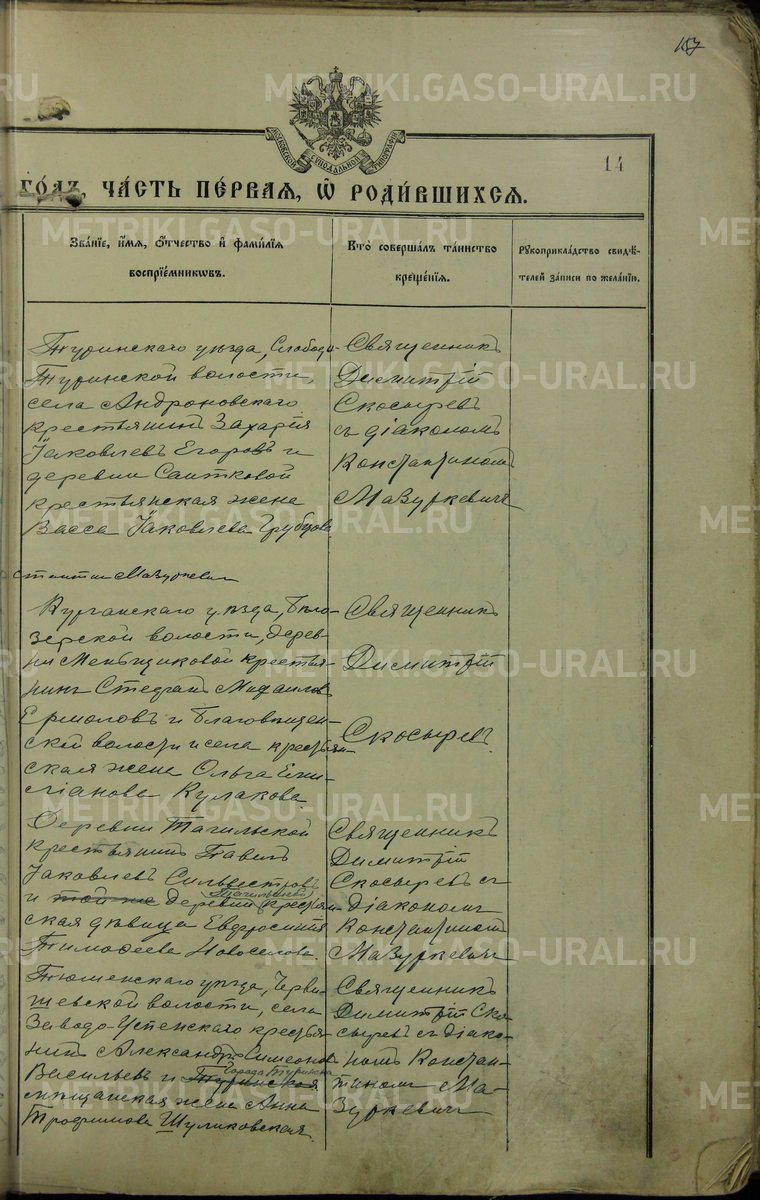 157
МОСКОВСКОЙ СѴНОДАЛЬНОЙ ТИПОГРАФІИ
14
ГОДЪ, ЧАСТЬ ПЕРВАЯ, Ѿ РОДИВШИХСЯ.
Званіе, имя, отчество и фамилія
воспріемниковъ.
Кто совершалъ таинство
крещенія.
Рукоприкладство свидѣ-
телей записи по желанію.
Туринскаго уѣзда, Слободо-
Туринской волости,
села Андроновскаго
крестьянинъ Захарія
Іаковлевъ Егоровъ и
деревни Саитковой
крестьянская жена
Васса Іаковлева
Священникъ
Димитрій
Скосыревъ
съ діакономъ
Константиномъ
Мазуркевичъ
Мазуркевич
Курганскаго уѣзда, Бѣло-
зерской волости, дерев-
ни Меньщиковой крестья-
нинъ Стефанъ Михаиловъ
Ермоловъ и Благовѣщен-
ской волости и села крестьян-
ская жена Ольга Еми-
ліанова Кулакова.
Священникъ
Димитрій
Скосыревъ.
Деревни Тагильской
крестьянинъ Павелъ
Іаковлевъ Сильвестровъ
Тагильской
и той же деревни крестьян-
ская дѣвица Евдросинія
Тимофеева Новоселова.
Священникъ
Димитрій
Скосыревъ съ
діакономъ
Константиномъ
Мазуркевичъ
Тюменскаго уѣзда, Черви-
шевской волости, села
Заводо-Успенскаго крестья-
нинъ Александръ Симеоновъ
города Туринска
Васильевъ и Туринская
мѣщанская жена Анна
Трофимова Шуликовская.
Священникъ
Димитрій Ско-
сыревъ съ діако-
номъ Констан-
тиномъ Ма-
зуркевичъ
METRIKI.GASO-URAL.RU